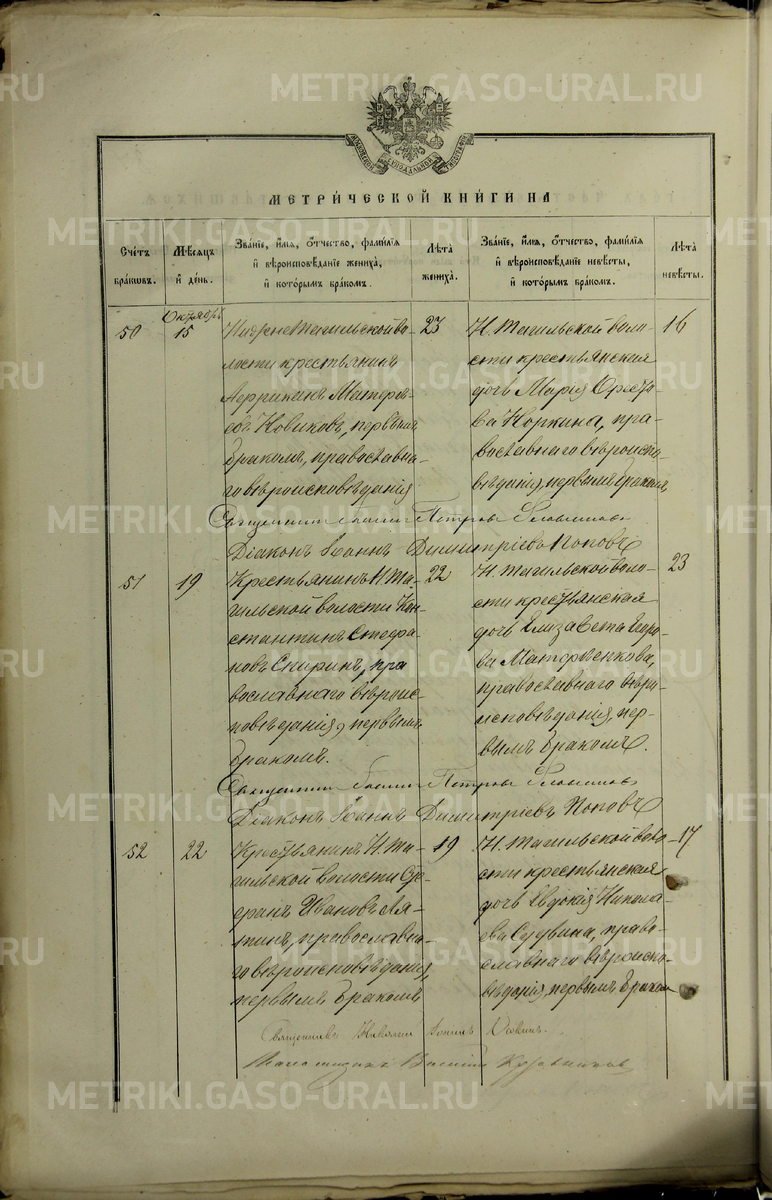 METRIKI.GASO-URAL.RU
МОСКОВСКОЙ СѴНОДАЛЬНОЙ ТИПОГРАФІИ
МЕТРИ́ЧЕСКОЙ КНИ́ГИ НА
Сче́тъ бра́ковъ.
Мѣ́сяцъ и҆ де́нь.
Зва́ніе, и҆́мя, ѻ҆́тчество, фами́лія и҆ вѣроисповѣ́даніе жениха̀, и҆ кото́рымъ бра́комъ.
Лѣ́та жениха̀.
Зва́ніе, и҆́мя, ѻ҆́тчество, фами́лія и҆ вѣроисповѣ́даніе невѣ́сты, и҆ кото́рымъ бра́комъ.
Лѣ́та невѣ́сты.
50
Октябрь
15
Нижнетагильской во-
лости крестьянинъ
Африканъ Матфѣе-
въ Новиковъ, первымъ
бракомъ, православна-
го вѣроисповѣданія
23
Н. Тагильской воло-
сти крестьянская
дочь Марія Ореста-
ва Коркина, пра-
вославнаго вѣроиспо-
вѣданія, первымъ бракомъ,
16
Священникъ Іоаннъ Петровъ
Діаконъ Іоаннъ Димитріевъ Поповъ
51
19
Крестьянинъ Н. Та-
гильской волости Кон-
стантинъ Стефа-
новъ Спиринъ, пра
вославнаго вѣроис-
повѣданія, первымъ
бракомъ.
22
Н. Тагильской воло-
сти крестьянская
дочь Елизавета Егоро-
ва Матвѣенкова,
православнаго вѣро-
исповѣданія, пер-
вымъ бракомъ.
23
Священникъ Іоаннъ Петровъ
Діаконъ Іоаннъ Димитріевъ Поповъ
52
22
Крестьянинъ Н. Та-
гильской волости Сте-
фанъ Ивановъ Ля-
пинъ, православна-
го вѣроисповѣданія,
первымъ бракомъ
19
Н. Тагильской воло-
сти крестьянская
дочь Евдокія Никола-
ева, право-
славнаго вѣроиспо-
вѣданія, первымъ браком
17
Священникъ Іоаннъ
Василій